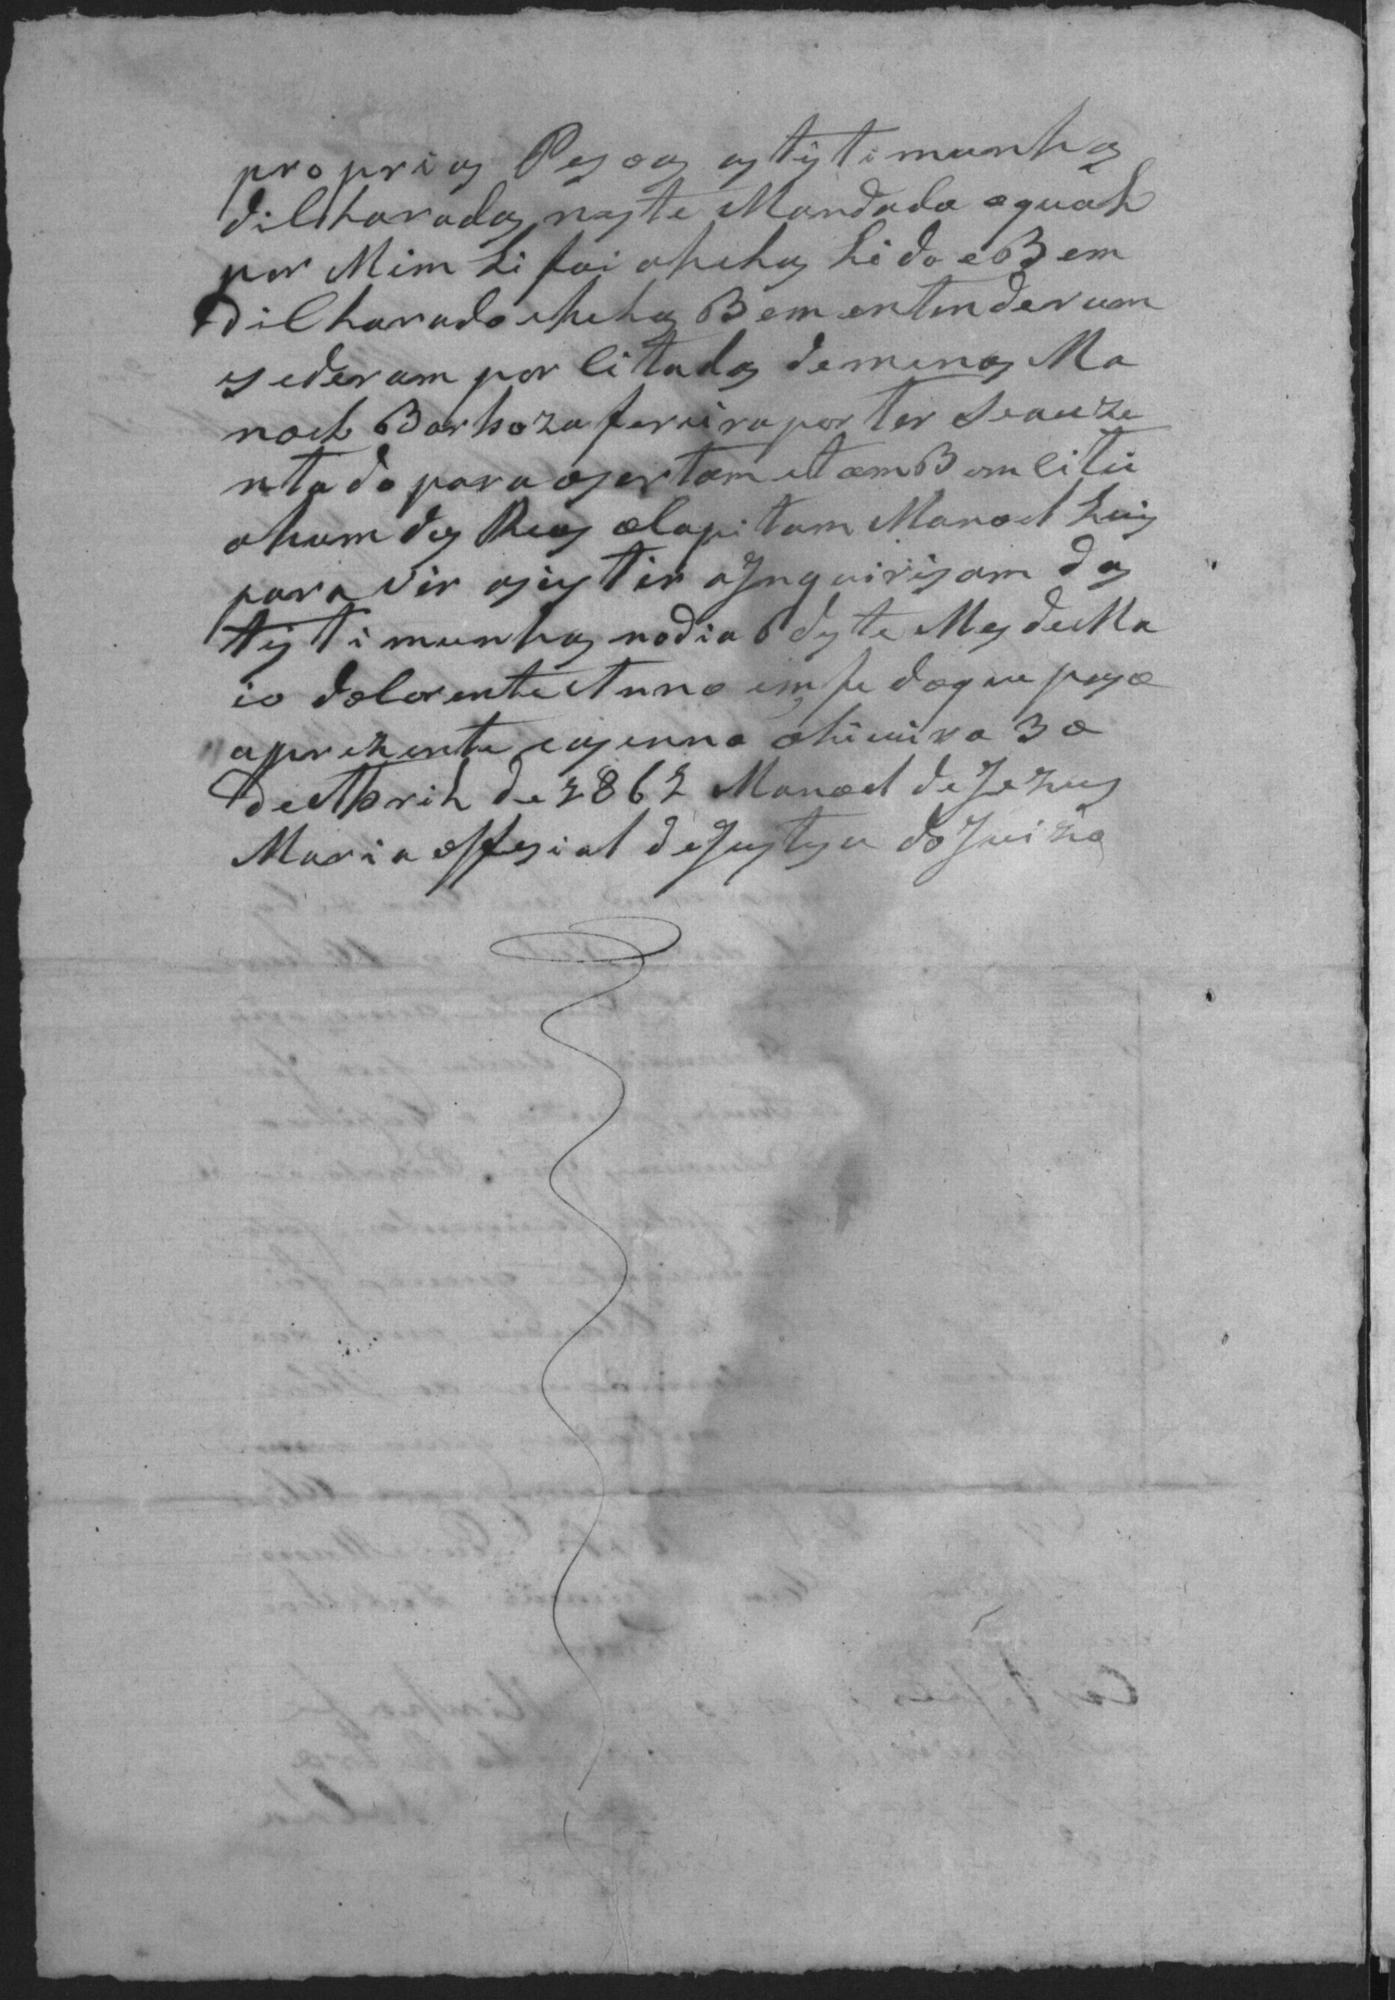 proprias Pesoas as tistimunhas
dilharadas neste Mandado o quah
por Mim Li foi ahehas Lido e Bem
Dilharado ehehas Bem entenderam
es ederam por Citados demenos Ma
noeh Barboza fereira por ter Seauze
ntado para o sertam etamBem Citei
ahum dos Reos oCapitam Manoel Luis
para vir asistir a Inquirisam das
tistimunhas nodia 6 deste Mes de Ma
io do Corente Anno em fe do que paso
aprezente easenno 3o
de Abrih de 1862 Manoel de Jezus
Maria offesial de Justisa do Juizo